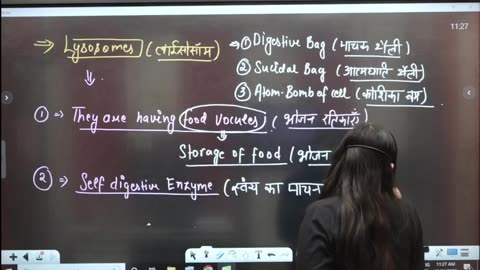 11:27
→ Lysosomes (लाईसोसोम) → ① Digestive Bag (पाचक थैली)
② Sucidal Bag (आत्मघाती थैली)
③ Atom-Bomb of cell (कोशिका बम)
① ⇒ They are having food vocules (भोजन रतिकाएँ)
Storage of food (भोजन
② ⇒ Self digestive Enzyme (स्वंय का पाचन
11:27 AM